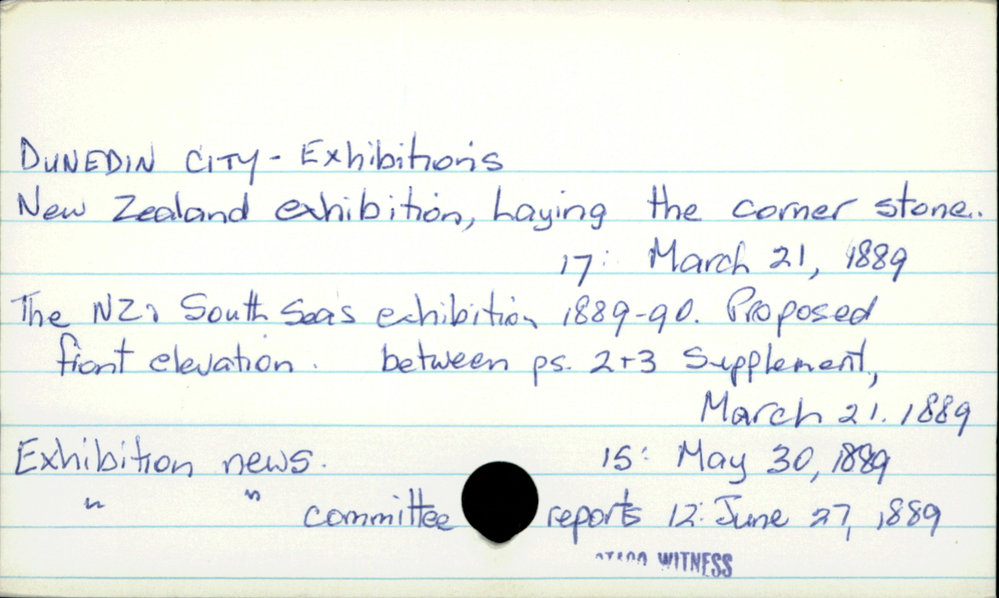 DUNEDIN CITY - Exhibitions
New Zealand exhibition, Laying the corner stone.
17: March 21, 1889
The NZ & South Seas exhibition 1889-90. Proposed
front elevation. between ps. 2+3 Supplement,
March 21. 1889
Exhibition news. 15: May 30, 1889
" " committee reports 12: June 27, 1889
WITNESS